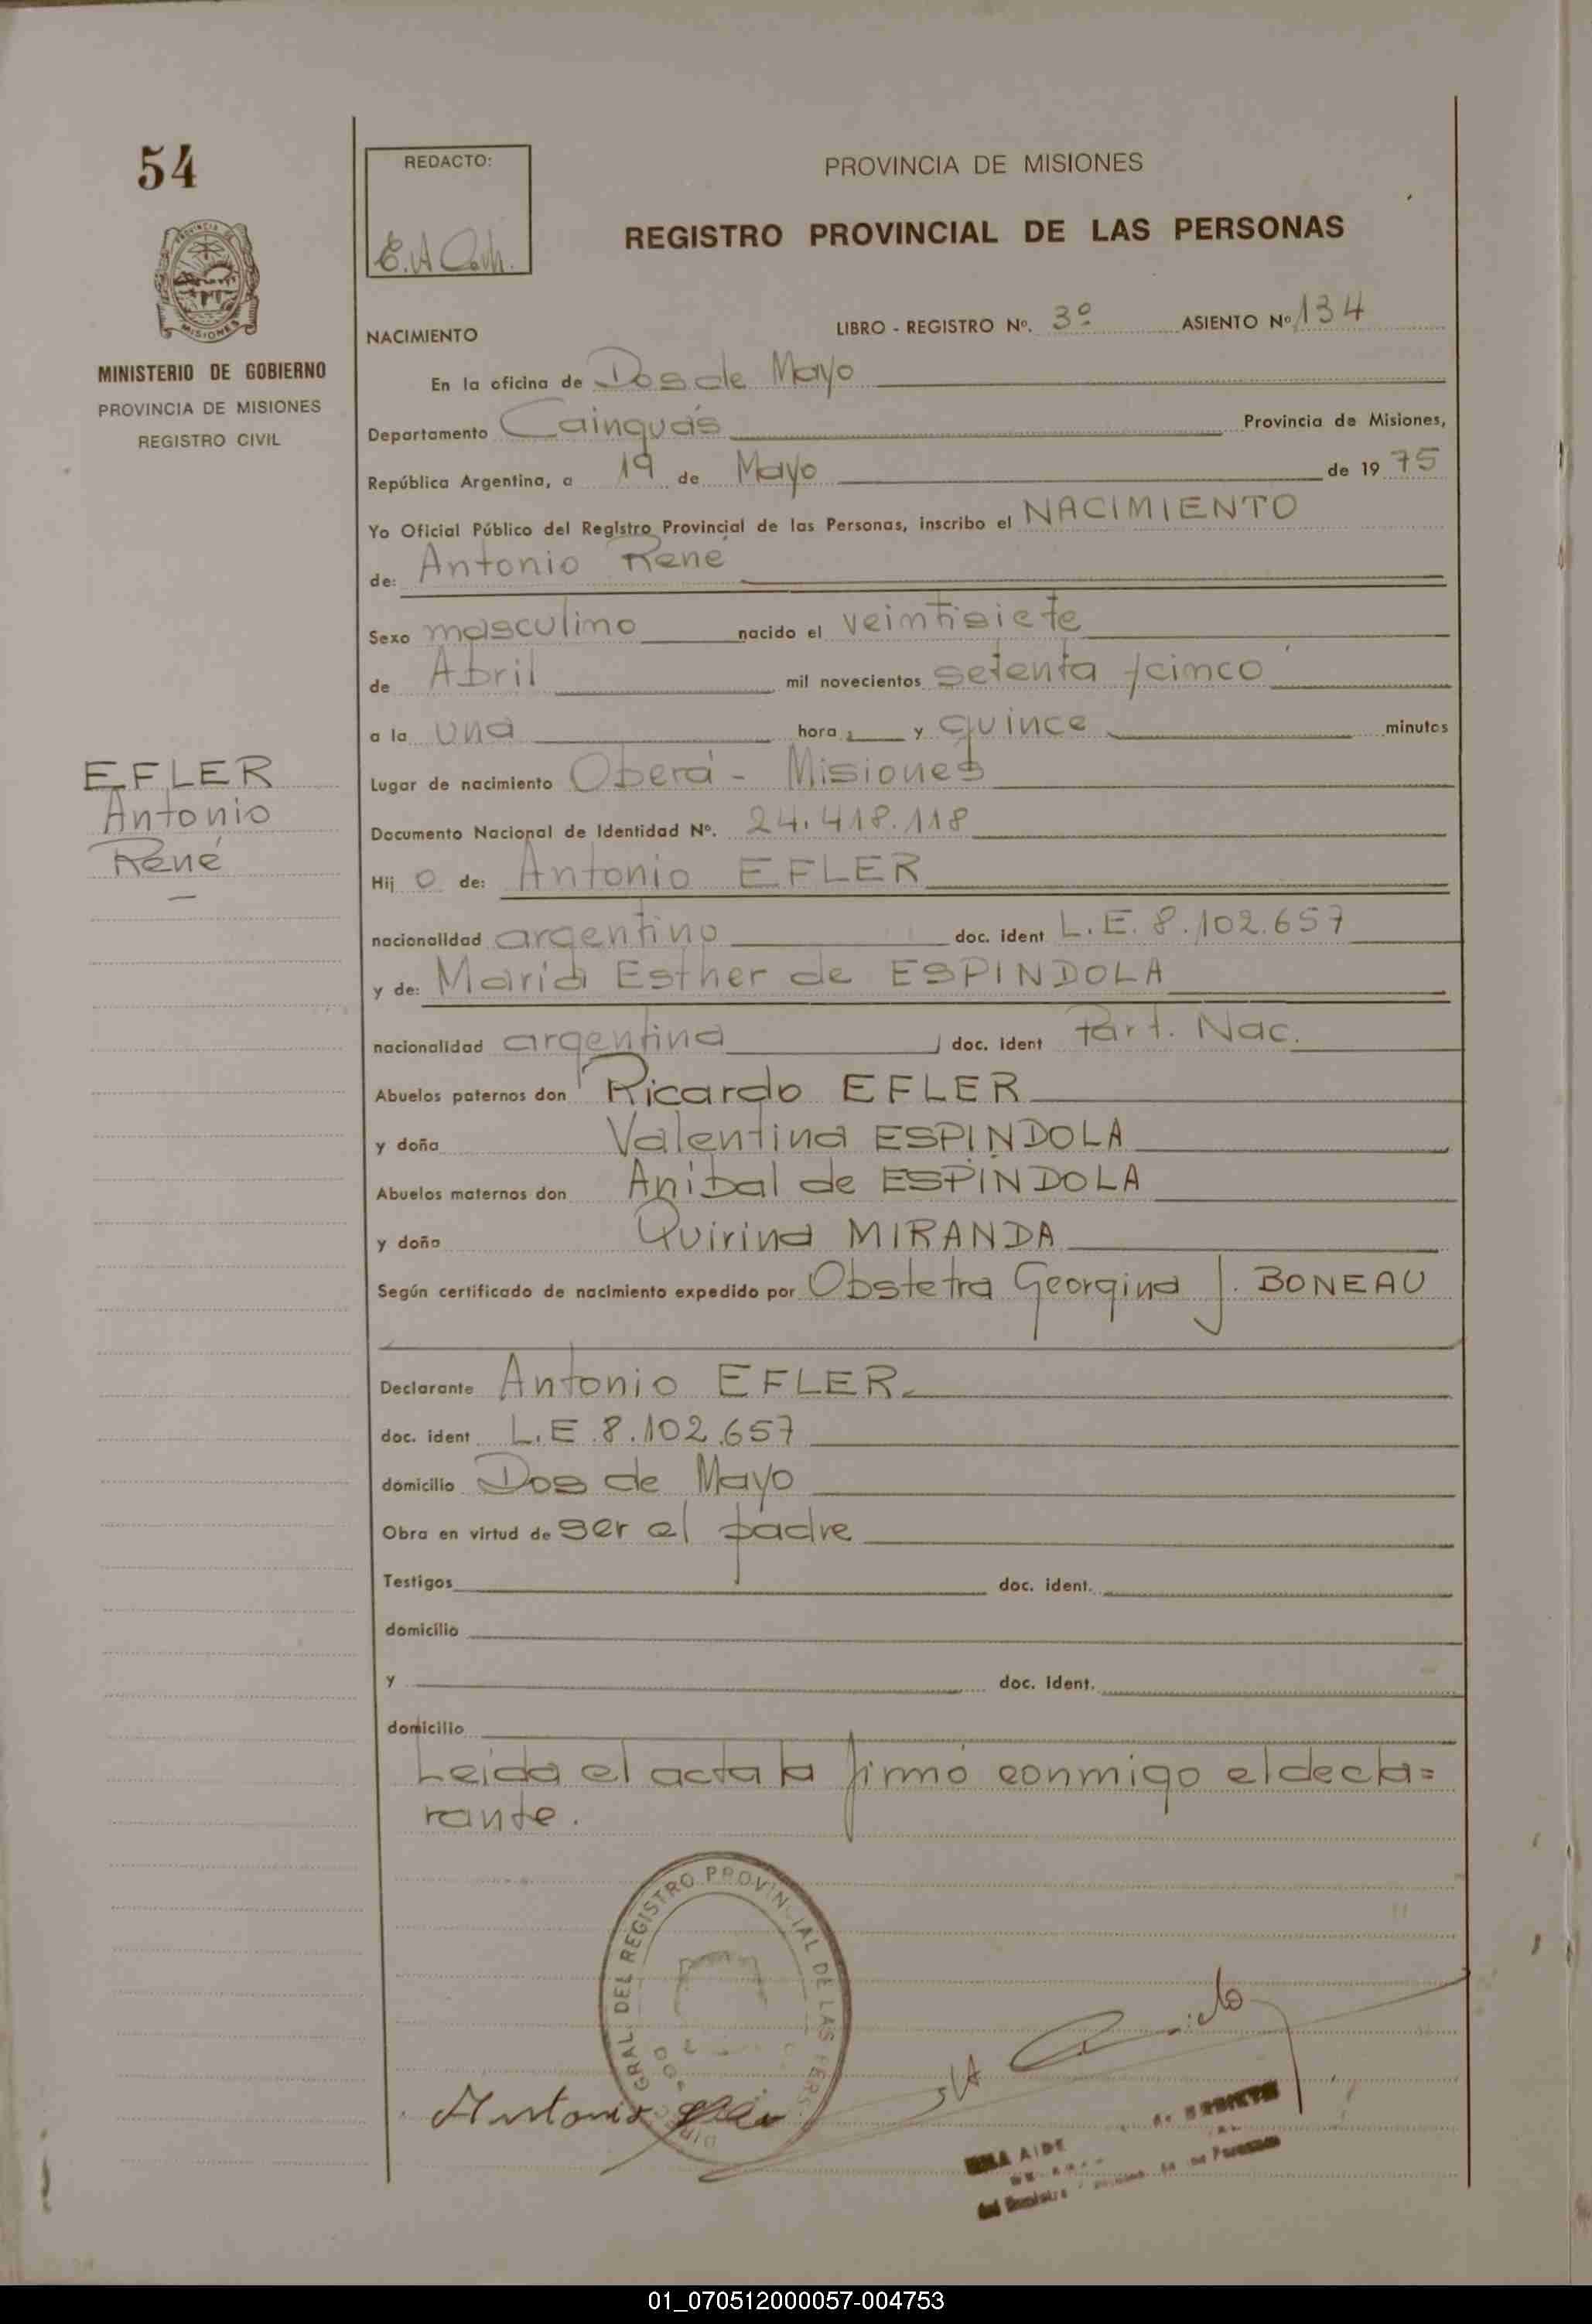 54
REDACTO:
PROVINCIA DE MISIONES
REGISTRO PROVINCIAL DE LAS PERSONAS
PROVINCIA DE
MISIONES
MINISTERIO DE GOBIERNO
PROVINCIA DE MISIONES
REGISTRO CIVIL
NACIMIENTO
LIBRO - REGISTRO Nº. 3º ASIENTO Nº 134
En la oficina de Dos de Mayo
Departamento Cainguás Provincia de Misiones,
República Argentina, a 19 de Mayo de 19 75
Yo Oficial Público del Registro Provincial de las Personas, inscribo el NACIMIENTO
de: Antonio René
Sexo masculino nacido el veintisiete
de Abril mil novecientos setenta y cinco
a la una hora y quince minutos
EFLER
Antonio
René
Lugar de nacimiento Oberá - Misiones
Documento Nacional de Identidad Nº. 24.418.118
Hij o de: Antonio EFLER
nacionalidad argentino doc. ident L.E. 8.102.657
y de: Maria Esther de ESPINDOLA
nacionalidad argentina doc. ident Part. Nac.
Abuelos paternos don Ricardo EFLER
y doña Valentina ESPINDOLA
Abuelos maternos don Anibal de ESPINDOLA
y doña Quirina MIRANDA
Según certificado de nacimiento expedido por Obstetra Georgina J. BONEAU
Declarante Antonio EFLER
doc. ident L.E 8.102.657
domicilio Dos de Mayo
Obra en virtud de ser el padre
Testigos doc. ident.
domicilio
y doc. ident.
domicilio
Leida el acta la firmó conmigo el decla=
rante.
GRAL. DEL REGISTRO PROVINCIAL DE LAS PERS.
Antonio
01_070512000057-004753